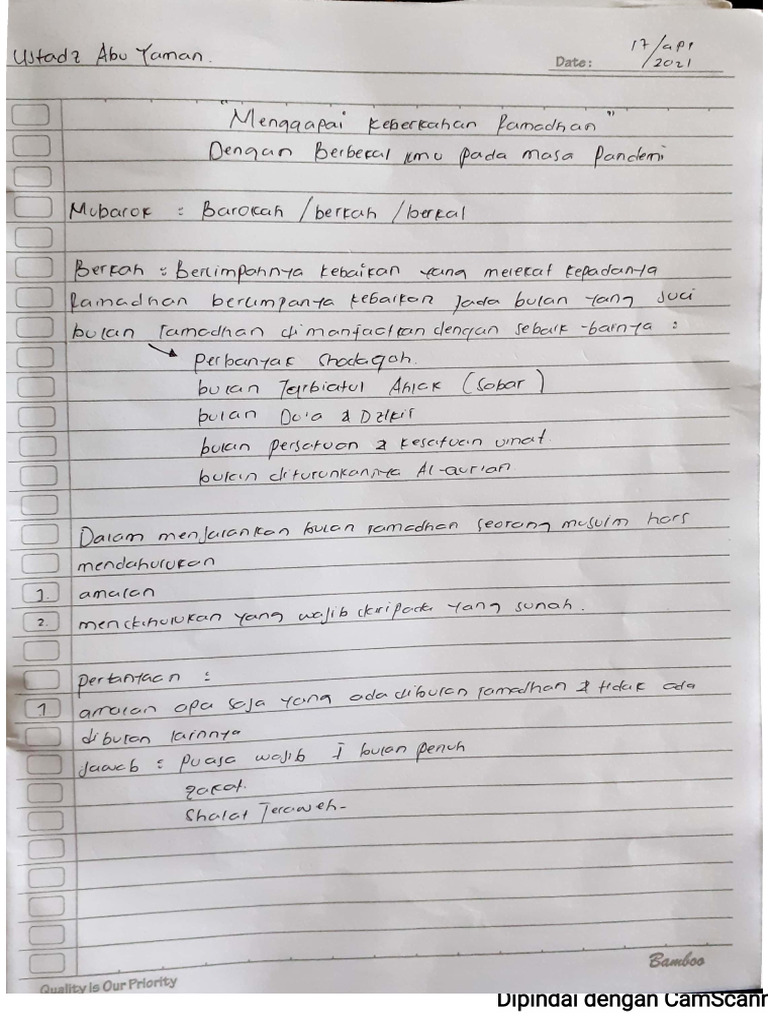 Ustadz Abu Yaman.
Date: 17/apr/2021
"Menggapai keberkahan Ramadhan"
Dengan Berbekal ilmu pada masa Pandemi
Mubarok : Barokah /berkah /berkal
Berkah : Berlimpahnya kebaikan yang melekat kepadanya
Ramadhan berlimpanya kebaikan pada bulan yang suci
bulan ramadhan dimanfaatkan dengan sebaik-baiknya :
perbanyak Shodaqoh.
bulan Tarbiatul Ahlak (Sobar)
bulan Do'a & Dzikir
bulan persatuan & kesatuan umat
bulan diturunkannya Al-qur'an
Dalam menjalankan bulan ramadhan seorang muslim hars
mendahulukan
1. amalan
2. mendahulukan yang wajib daripada yang sunah.
pertanyaan :
1 amalan apa saja yang ada dibulan ramadhan & tidak ada
dibulan lainnya
Jawab : Puasa wajib 1 bulan penuh
zakat.
Shalat Teraweh-
Bamboo
Quality is Our Priority
Dipindai dengan CamScann